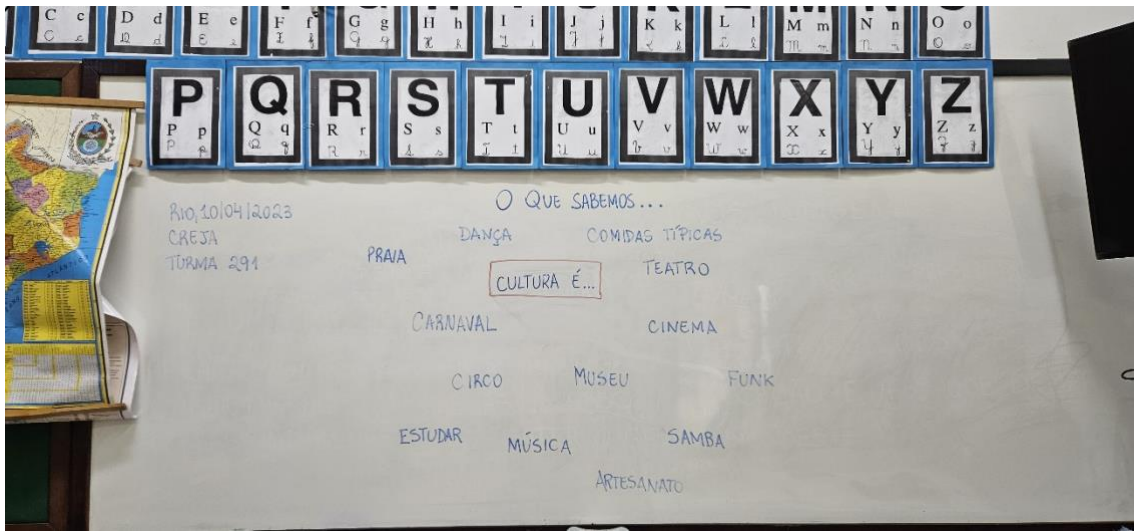 C c
D d
E e
F f
G g
H h
I i
J j
K k
L l
M m
N n
O o
P
P p
P p
Q
Q q
Q q
R
R r
R r
S
S s
S s
T
T t
T t
U
U u
U u
V
V v
V v
W
W w
W w
X
X x
X x
Y
Y y
Y y
Z
Z z
Z z
RIO, 10/04/2023
CREJA
TURMA 291
O QUE SABEMOS...
DANÇA COMIDAS TÍPICAS
PRAIA
TEATRO
CULTURA É...
CARNAVAL CINEMA
CIRCO MUSEU FUNK
ESTUDAR MÚSICA SAMBA
ARTESANATO